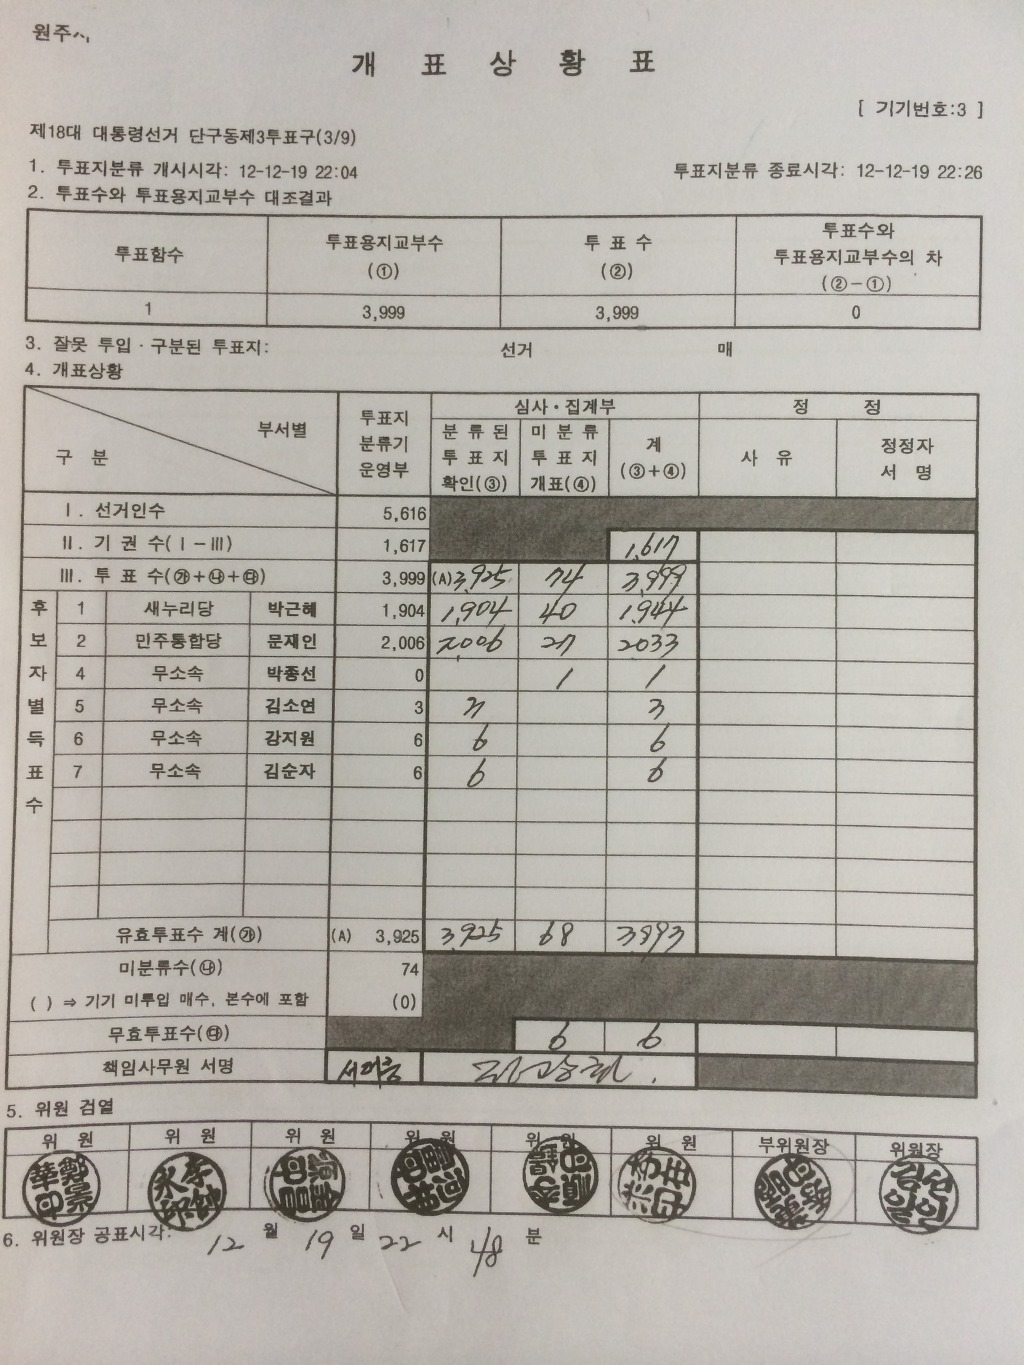 원주시
개 표 상 황 표
[ 기기번호:3 ]
제18대 대통령선거 단구동제3투표구(3/9)
1. 투표지분류 개시시각: 12-12-19 22:04 투표지분류 종료시각: 12-12-19 22:26
2. 투표수와 투표용지교부수 대조결과
투표함수 투표용지교부수 (①) 투 표 수 (②) 투표수와 투표용지교부수의 차 (②-①)
1 3,999 3,999 0
3. 잘못 투입·구분된 투표지: 선거 매
4. 개표상황
부서별 구 분 투표지 분류기 운영부 심사·집계부 정 정
분 류 된 투 표 지 확인(③) 미 분 류 투 표 지 개표(④) 계 (③+④) 사 유 정정자 서 명
Ⅰ. 선거인수 5,616
Ⅱ. 기 권 수(Ⅰ-Ⅲ) 1,617 1,617
Ⅲ. 투 표 수(㉮+㉯+㉰) 3,999 (A) 3,925 74 3,999
후보자별득표수
1 새누리당 박근혜 1,904 1,904 40 1,944
2 민주통합당 문재인 2,006 2,006 27 2033
4 무소속 박종선 0 1 1
5 무소속 김소연 3 3 3
6 무소속 강지원 6 6 6
7 무소속 김순자 6 6 6
유효투표수 계(㉮) (A) 3,925 3,925 68 3,993
미분류수(㉯) 74
( ) ⇒ 기기 미투입 매수, 본수에 포함 (0)
무효투표수(㉰) 6 6
책임사무원 서명
5. 위원 검열
위 원 위 원 위 원 위 원 위 원 위 원 부위원장 위원장
6. 위원장 공표시각: 12 월 19 일 22 시 48 분